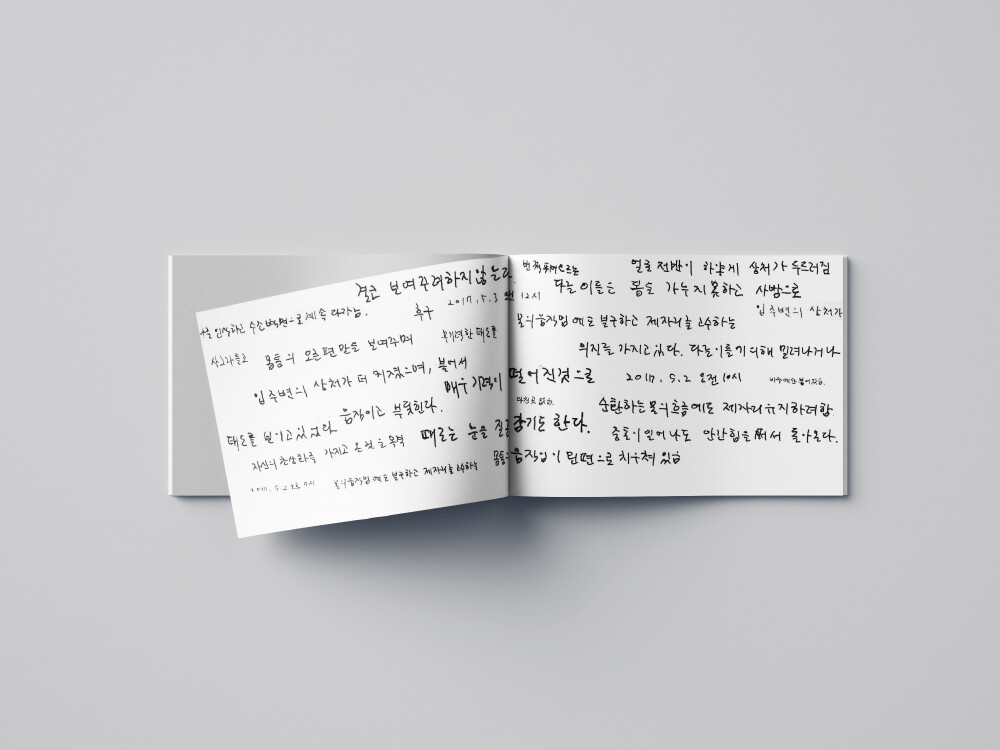 결코 보여주려하지않는다.
인식하고 수조벽면으로 계속 다가감. 후구 2017. 5. 3 오전 12시
몸통의 오른편만을 보여주며
입주변의 상처가 더 커졌으며, 붙어서
매우 기력이 떨어진것으로
태도를 보이고있었다 움직이고 부딪힌다.
자신의 초상화를 가지고 온것을 목격 때로는 눈을 질끈 감기도 한다.
2017. 5. 2 오후 7시 물의움직임에도 불구하고 제자리를 고수하는 몸통의 움직임이 뒤편으로 치우쳐 있음
얼굴 전반이 하얗게 상처가 두드러짐
다른이들은 몸을 가누지못하고 사방으로
입주변의 상처가
물의움직임에도 불구하고 제자리를 고수하는
의지를 가지고있다. 다른이들기의해 밀려나거나
2017. 5. 2 오전 10시
순환하는물의흐름에도 제자리유지하려함
충돌이 일어나도 안간힘을 써서 돌아온다.